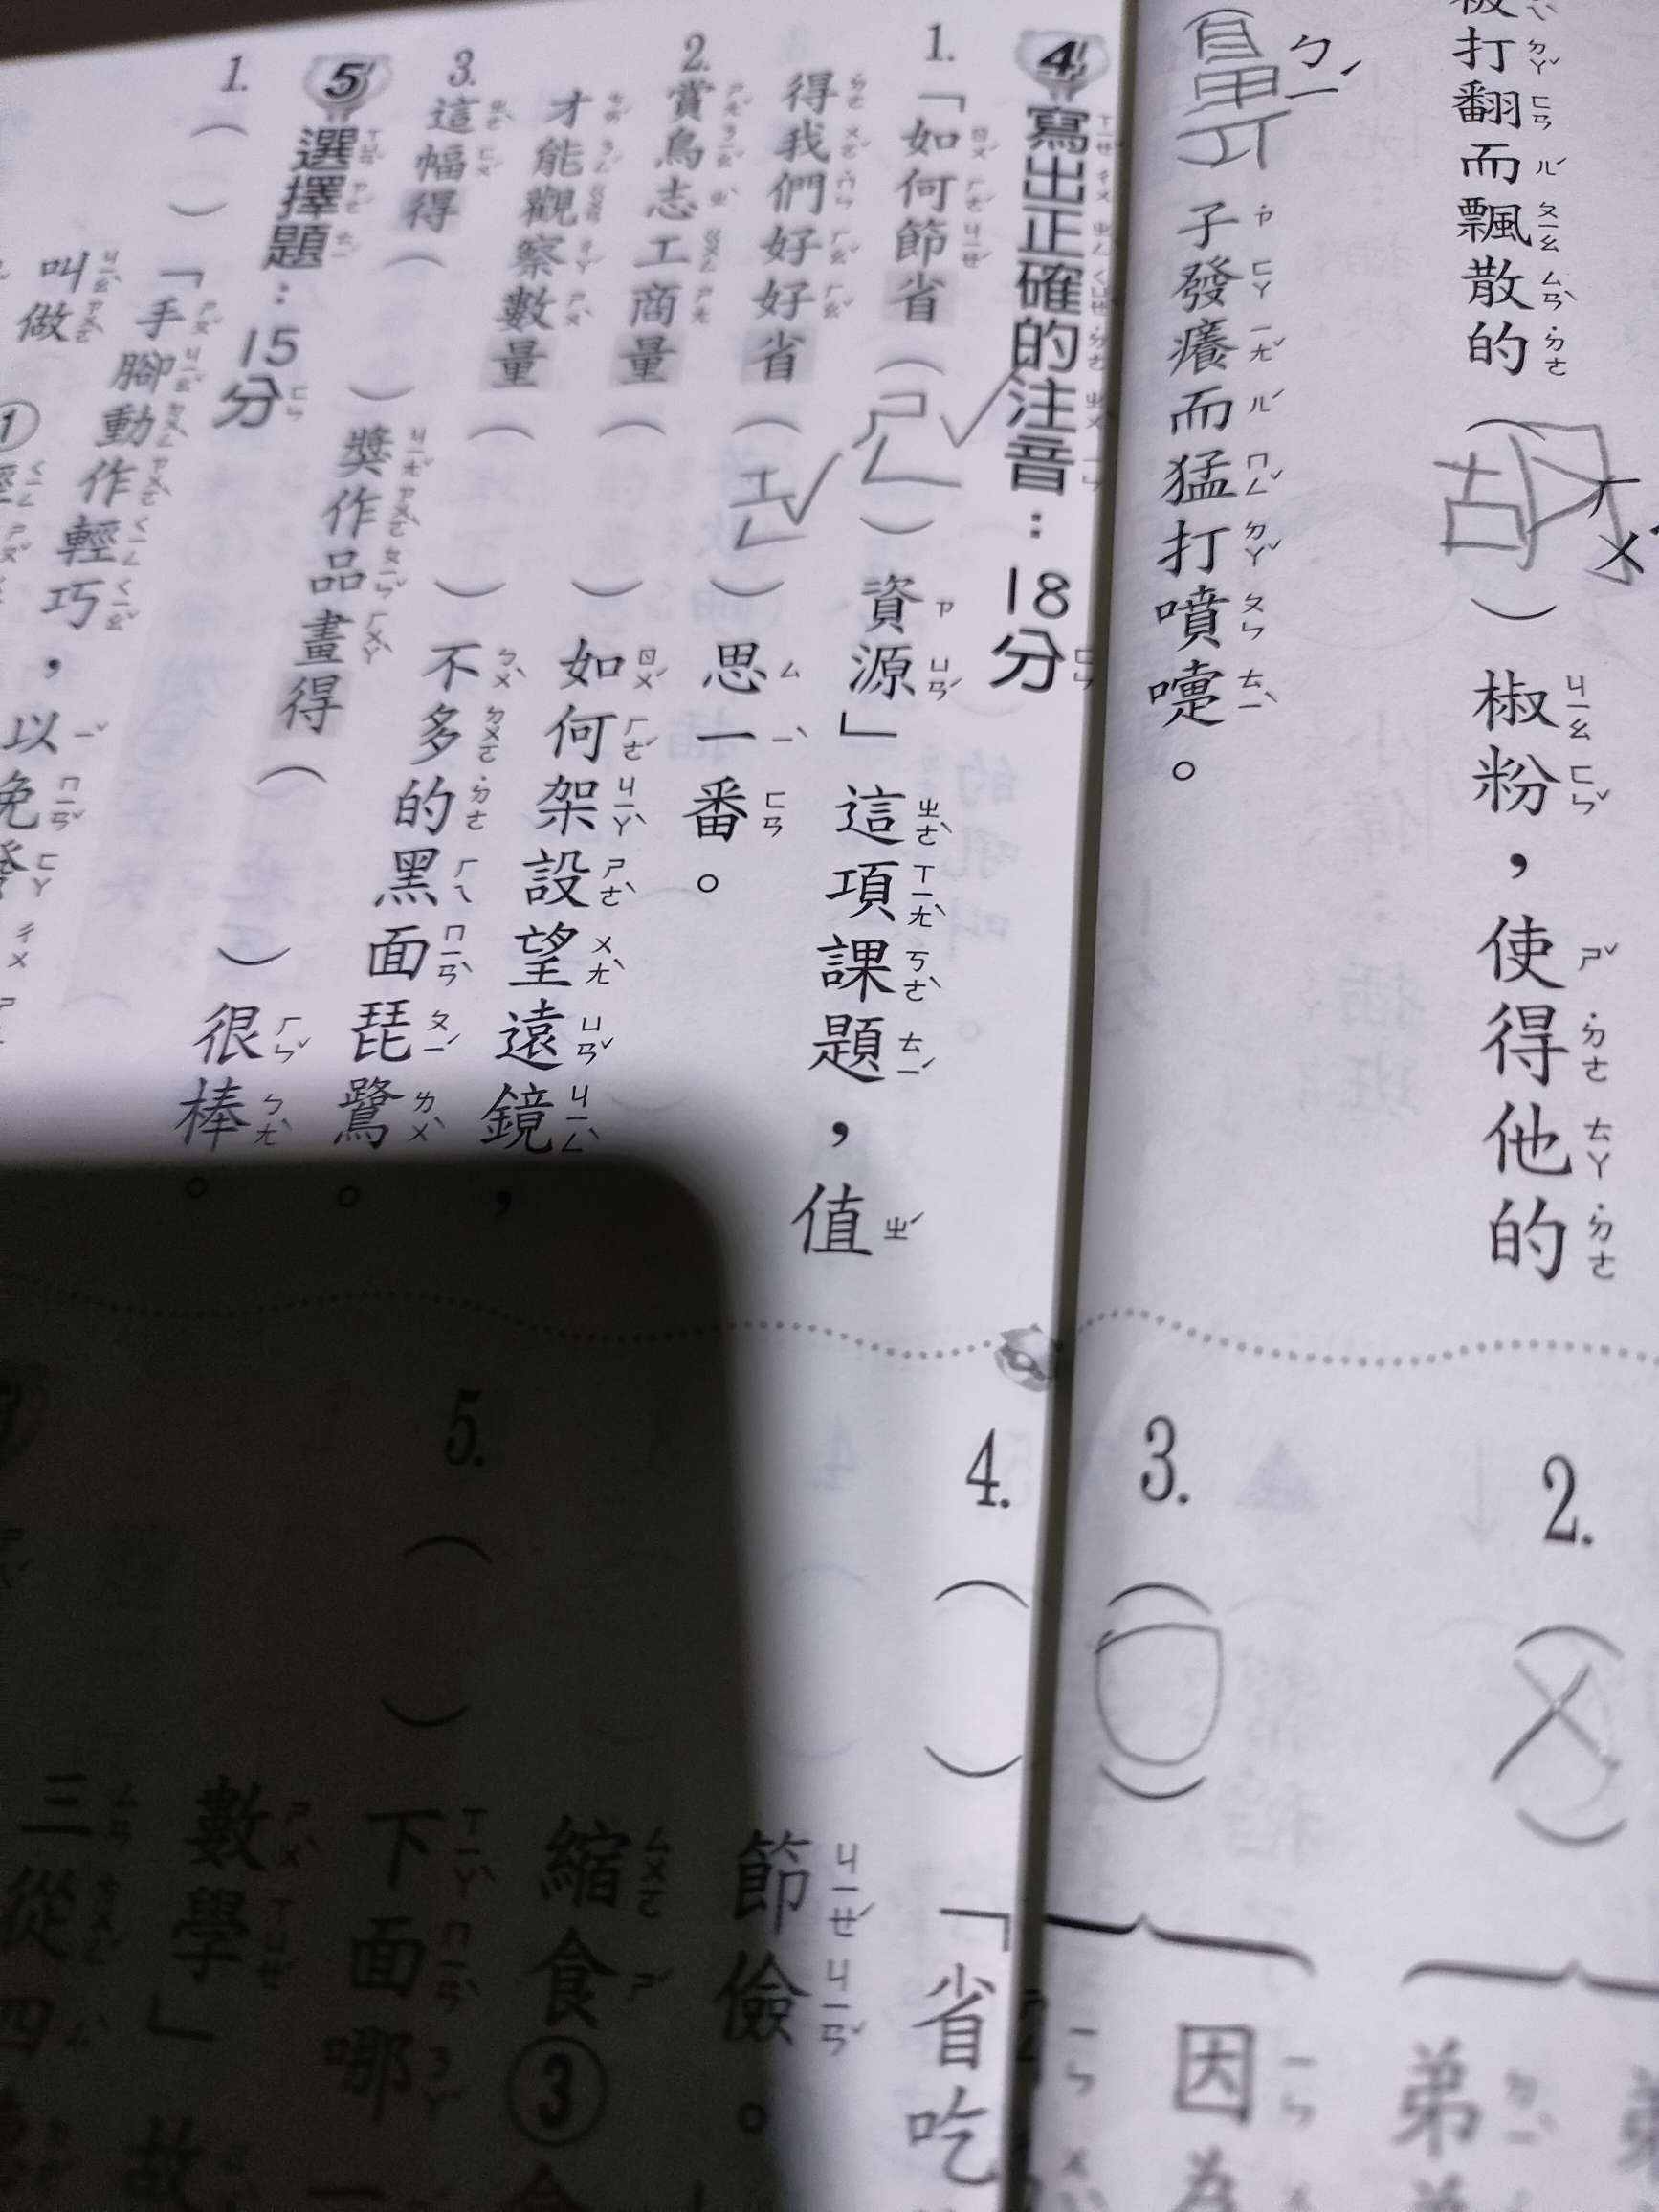 被打翻而飄散的（胡）椒粉，使得他的
（鼻ㄅㄧˊ）子發癢而猛打噴嚏。
4 寫出正確的注音：18分
1.「如何節省（ㄕㄥ）資源」這項課題，值
得我們好好省（ㄒㄥ）思一番。
2.賞鳥志工商量（ ）如何架設望遠鏡，
才能觀察數量（ ）不多的黑面琵鷺。
3.這幅得（ ）獎作品畫得（ ）很棒。
5 選擇題：15分
1.（ ）「手腳動作輕巧，以免發
叫做
2.（×）
3.（○）因為
弟
4.（ ）「省吃
節儉。
縮食③食
5.（ ）下面哪一
數學」故
三從四